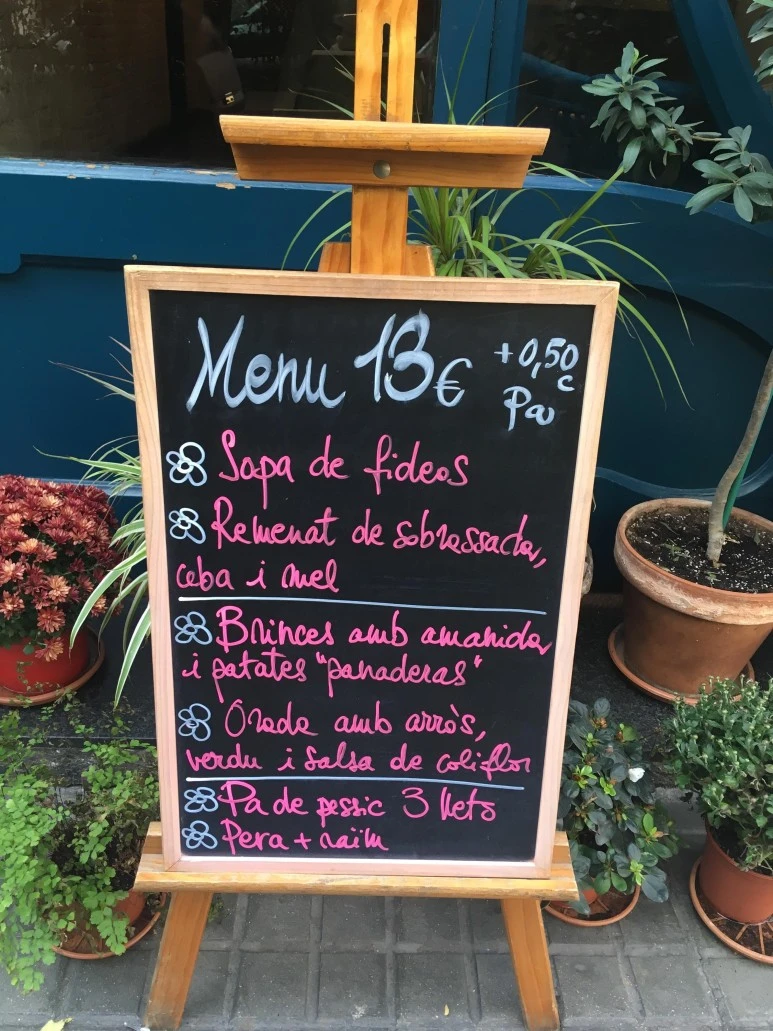 Menu 13€ +0,50c Pa
Sopa de fideos
Remenat de sobrassada,
ceba i mel
Brinces amb amanida
i patates "panaderas"
Orada amb arròs,
verdu i salsa de coliflor
Pa de pessic 3 llets
Pera + raïm